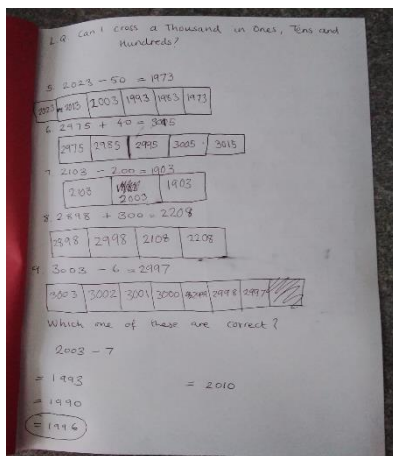 L.Q. Can I cross a Thousand in Ones, Tens and
Hundreds?
5. 2023 - 50 = 1973
2023 2013 2003 1993 1983 1973
6. 2975 + 40 = 3015
2975 2985 2995 3005 3015
7. 2103 - 200 = 1903
2103 2003 1903
8. 2898 + 300 = 2208
2898 2998 2108 2208
9. 3003 - 6 = 2997
3003 3002 3001 3000 2998 2997
Which one of these are correct?
2003 - 7
= 1993 = 2010
= 1990
= 1996